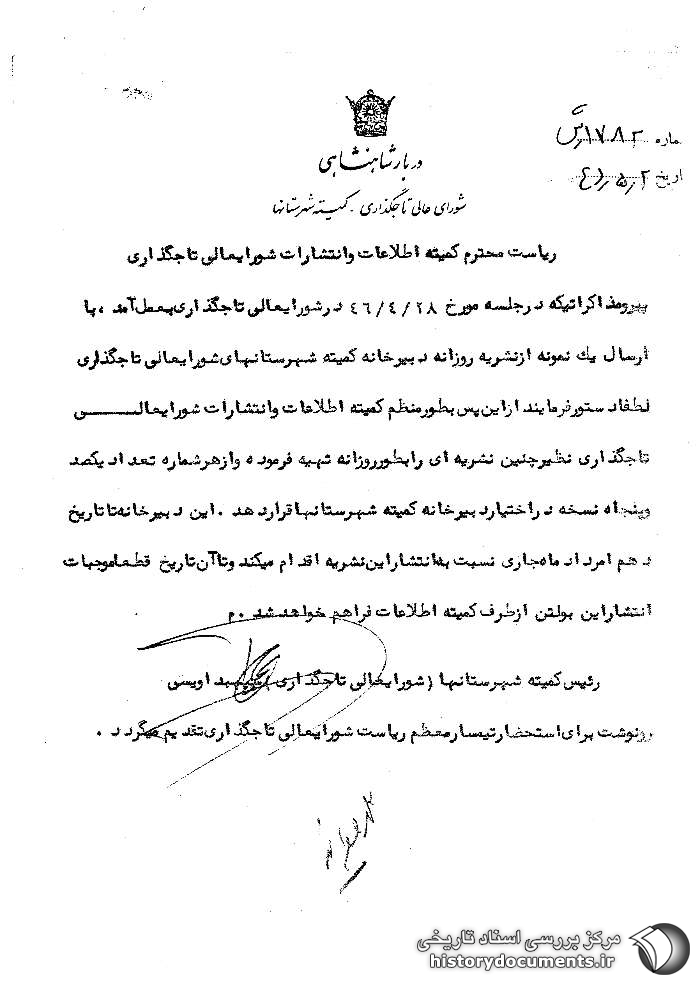 ماره ۱۷۸۲
اریخ ۲؍۵؍۴۶
دربار شاهنشاهی
شورای عالی تاجگذاری - کمیته شهرستانها
ریاست محترم کمیته اطلاعات وانتشارات شورایعالی تاجگذاری
پیرومذاکراتیکه درجلسه مورخ ۴۶/۴/۲۸ درشورایعالی تاجگذاری بعمل‌آمد ، با
ارسال یك نمونه ازنشریه روزانه دبیرخانه کمیته شهرستانهای شورایعالی تاجگذاری
لطفاد ستورفرمایند ازاین پس بطورمنظم کمیته اطلاعات وانتشارات شورایعالـــی
تاجگذاری نظیرچنین نشریه ای رابطورروزانه تهیه فرموده وازهرشماره تعداد یکصد
وپنجاه نسخه دراختیاردبیرخانه کمیته شهرستانهاقراردهد . این دبیرخانه‌تاتاریخ
دهم امرداد ماه‌جاری نسبت به‌انتشاراین‌نشریه اقدام میکند وتاآن‌تاریخ قطعاموجبات
انتشاراین بولتن ازطرف کمیته اطلاعات فراهم خواهدشد .م
رئیس کمیته شهرستانها (شورایعالی تاجگذاری) سپهبد اویسی
رونوشت برای‌استحضارتیسارمعظم ریاست شورایعالی تاجگذاری‌تقدیم میگردد .
مرکز بررسی اسناد تاریخی
historydocuments.ir